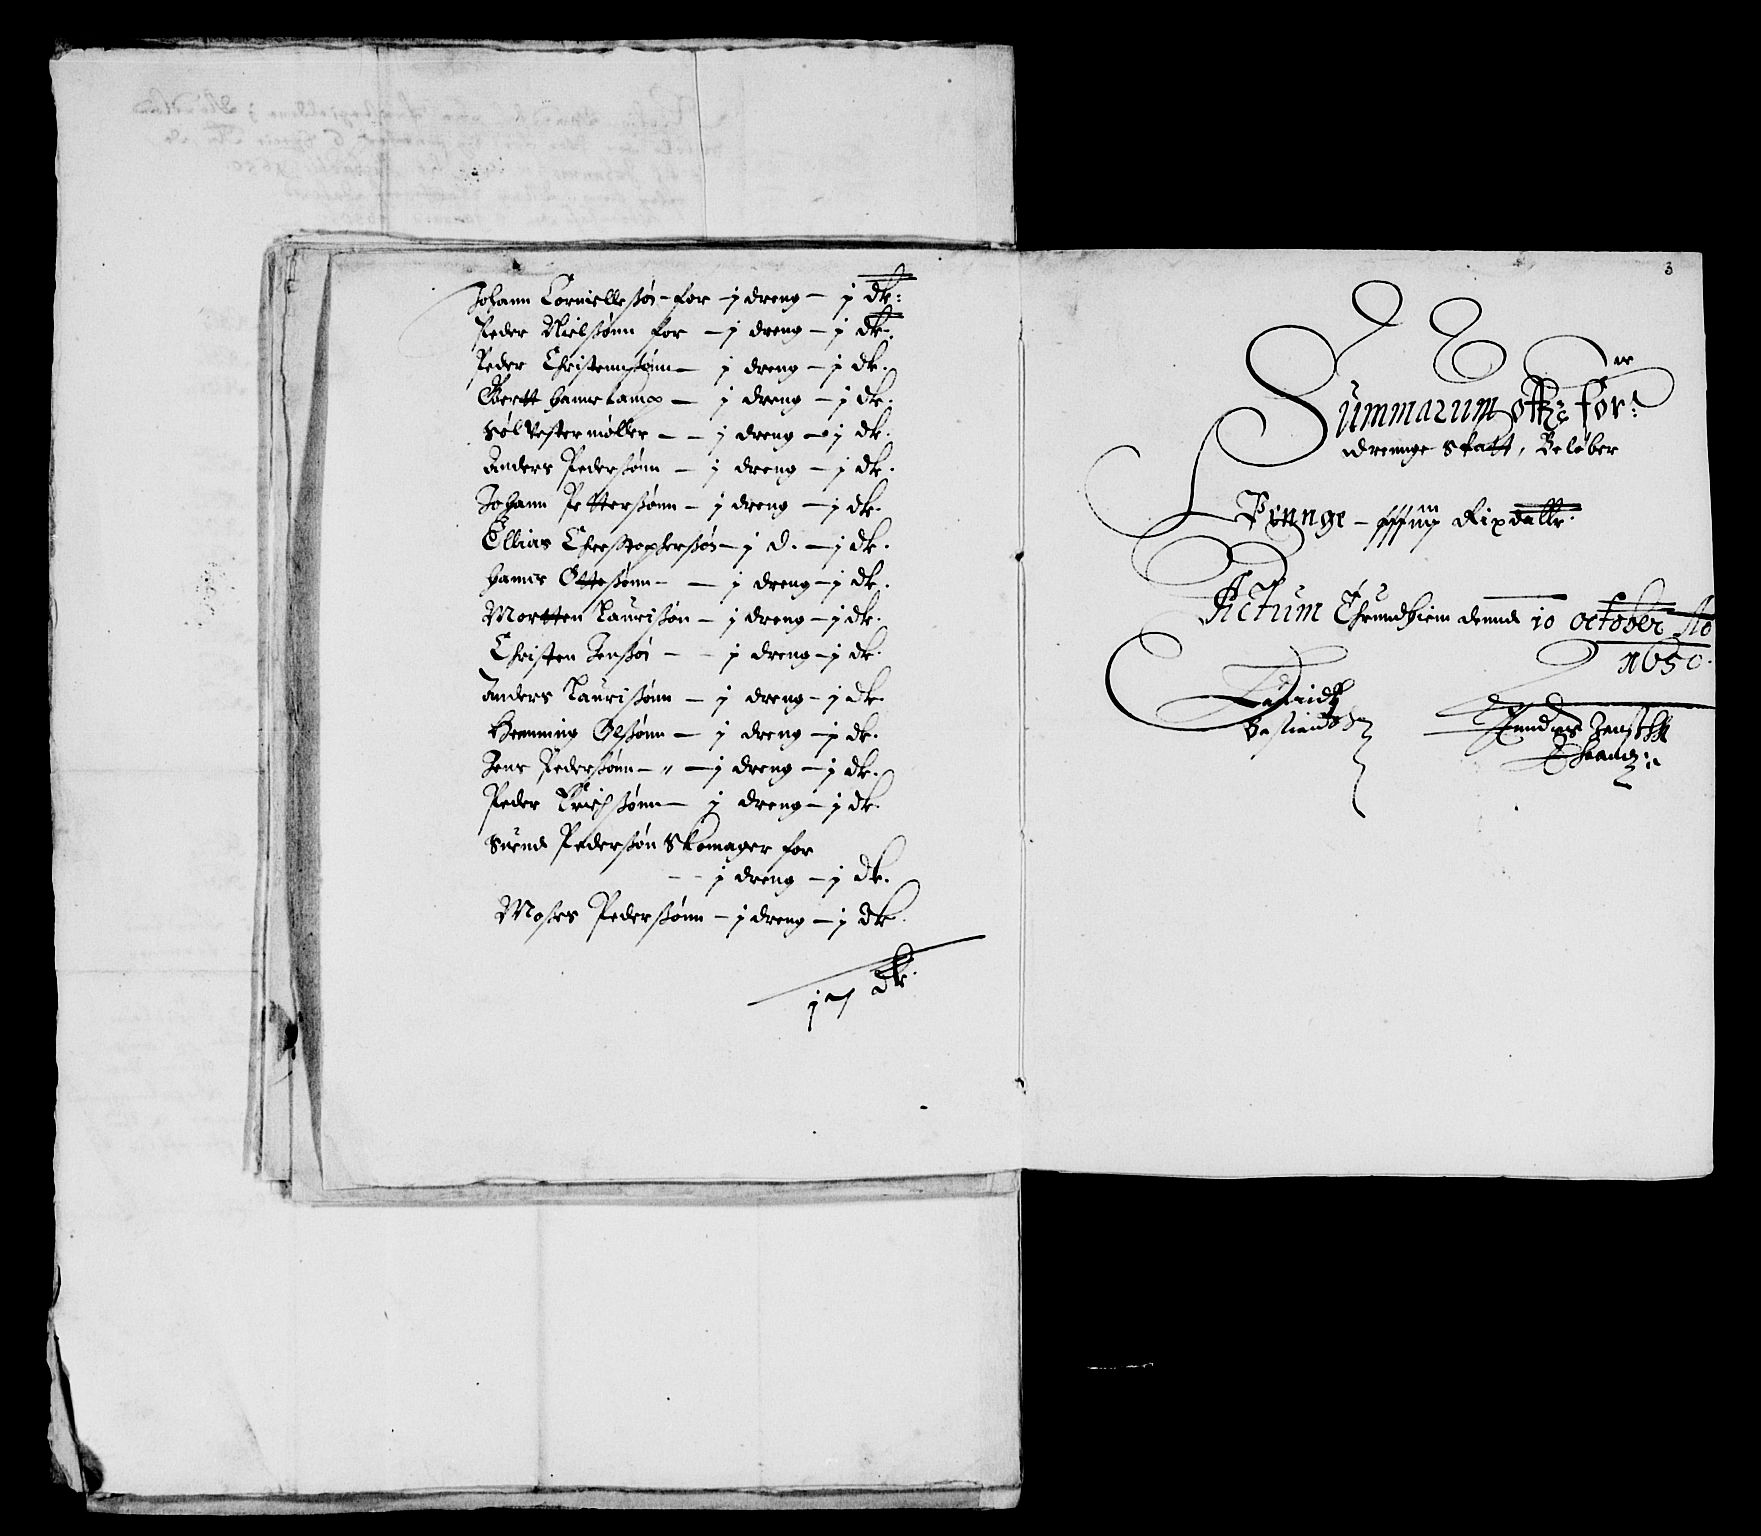 Johann Cornelleßøn - for - j dreng - j dlr:
Peder Nielßønn for - j dreng - j dlr.
Peder Christennsønn - j dreng - j dlr.
Geertt - j dreng - j dlr.
Søl Vestermøller - - j dreng - j dlr.
Anders Pederßønn - j dreng - j dlr.
Johann Petterßønn - j dreng - j dlr.
Ellias Christopherßøn - j d. - j dlr.
Hanns Ottesønn - - j dreng - j dlr.
Mortten Laurisßøn - j dreng - j dlr.
Christen Jenßøn - - j dreng - j dlr.
Anders Laurisßønn - j dreng - j dlr.
Hemming Olsønn - j dreng - j dlr.
Jens Pederßønn - " - j dreng - j dlr.
Peder Erichsønn - j dreng - j dlr.
Suend Pederßøn Skomager for
- - j dreng - j dlr.
Moses Pederßønn - j dreng - j dlr.
17 dlr.
3
Summarum offuer for:ne
drennge Skatt, Beløber
Pennge - Rixdallr.
Actum Thrundhiem dennd 10 october Ao
1650.